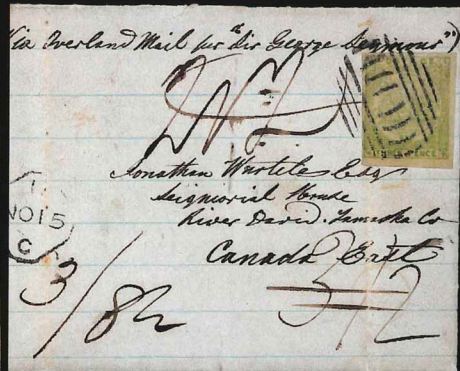 Via Overland Mail per "Sir George Seymour")
Jonathan Wurtele Esqr
Seignorial House
River David. Yamaska Co
Canada East
1
NO 15
C
3/8½
3/2